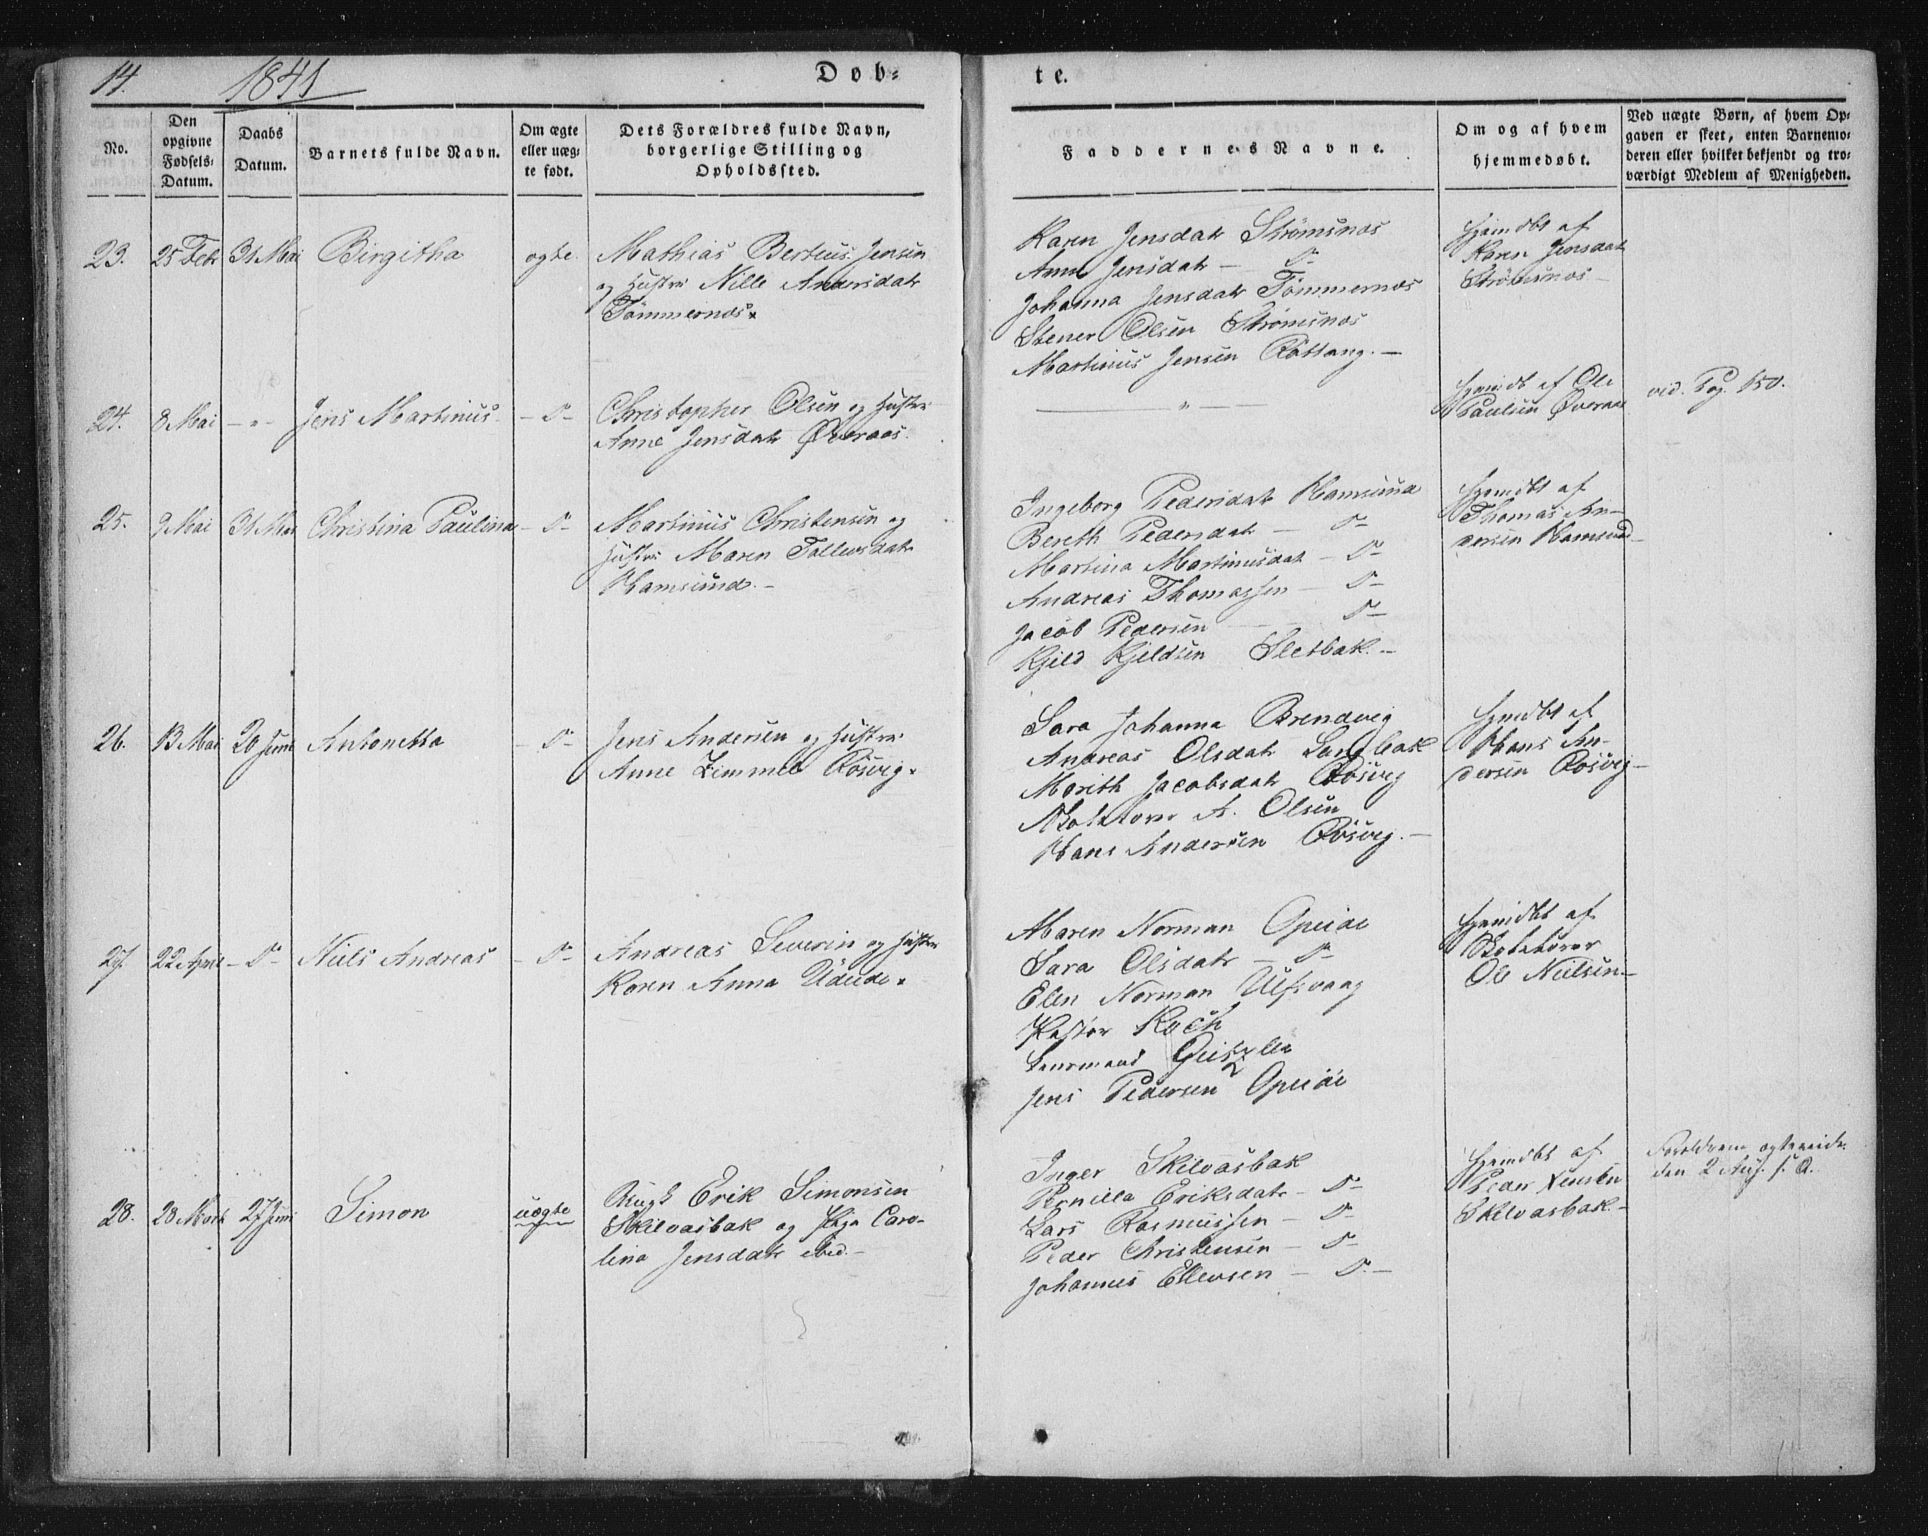 14. 1841 Døb-
te.
No.
Den opgivne Fødsels-Datum.
Daabs Datum.
Barnets fulde Navn.
Om ægte eller uægte født.
Dets Forældres fulde Navn, borgerlige Stilling og Opholdssted.
Faddernes Navne.
Om og af hvem hjemmedøbt.
Ved uægte Børn, af hvem Opgaven er skeet, enten Barnemoderen eller hvilket bekjendt og troværdigt Medlem af Menigheden.
23. 25 Febr 31 Mai Birgitha ægte. Mathias Berteus Jensen
og Hustru Nille Andersdatr
Tømmernæs.
Karen Jensdatr Strømsnæs
Anne Jensdatr — D—
Johanna Jensdatr Tømmernæs
Stener Olsen Strømsnæs
Martinus Jensen Røttang. —
Hjemdbt af
Karen Jensdatr
Strømsnæs —
24. 8 Mai — " — Jens Martinus. — D— Christopher Olsen og Hustru
Anne Jensdatr Øveraas.
— " —
Hjemdb af Ole
Paulsen Øveraas
vid. Pag. 150.
25. 9 Mai 31 Mai Christina Paulina — D— Martinus Christensen og
Hustru Maren Tollevsdatr
Hamsund. —
Ingeborg Pedersdatr Hamsund
Bereth Pedersdatr — D—
Martina Martinusdatr — D—
Andreas Thomassen — D—
Jacob Pedersen — D—
Kjeld Kjeldsen Sletbak. —
Hjemdbt af
Thomas An-
dersen Hamsund —
26. 13 Mai 20 Juni Antonetta — D— Jens Andersen og Hustru
Anne Zimmer Røsvig.
Sara Johanna Brendvig
Andreas Olsdatr Langbak
Marith Jacobsdatr Røsvig
A. Olsen
Hans Andersen Røsvig. —
Hjemdbt af
Hans An-
dersen Røsvig —
27. 22 April — D— Niels Andreas — D— Andreas Severin og Hustru
Karen Anna Udeide.
Maren Norman Opeide
Sara Olsdatr — D—
Elen Norman Ulfsvaag
Pastor Koch
Lensmand
Jens Pedersen Opeide
Hjemdbt af
Ole Nielsen —
28. 28 Marts 27 Juni Simon uægte Ungk Erik Simonsen
Skilvasbak og Pige Caro-
lina Jensdatr ibid. —
Inger Skilvasbak
Pernilla Eriksdatr — D—
Lars Rasmussen — D—
Peder Christensen — D—
Johannes Ellevsen — D. —
Hjemdbt af
Peder Jensen
Skilvasbak —
Forældrene ægteviede
den 2 Aug. s. A.